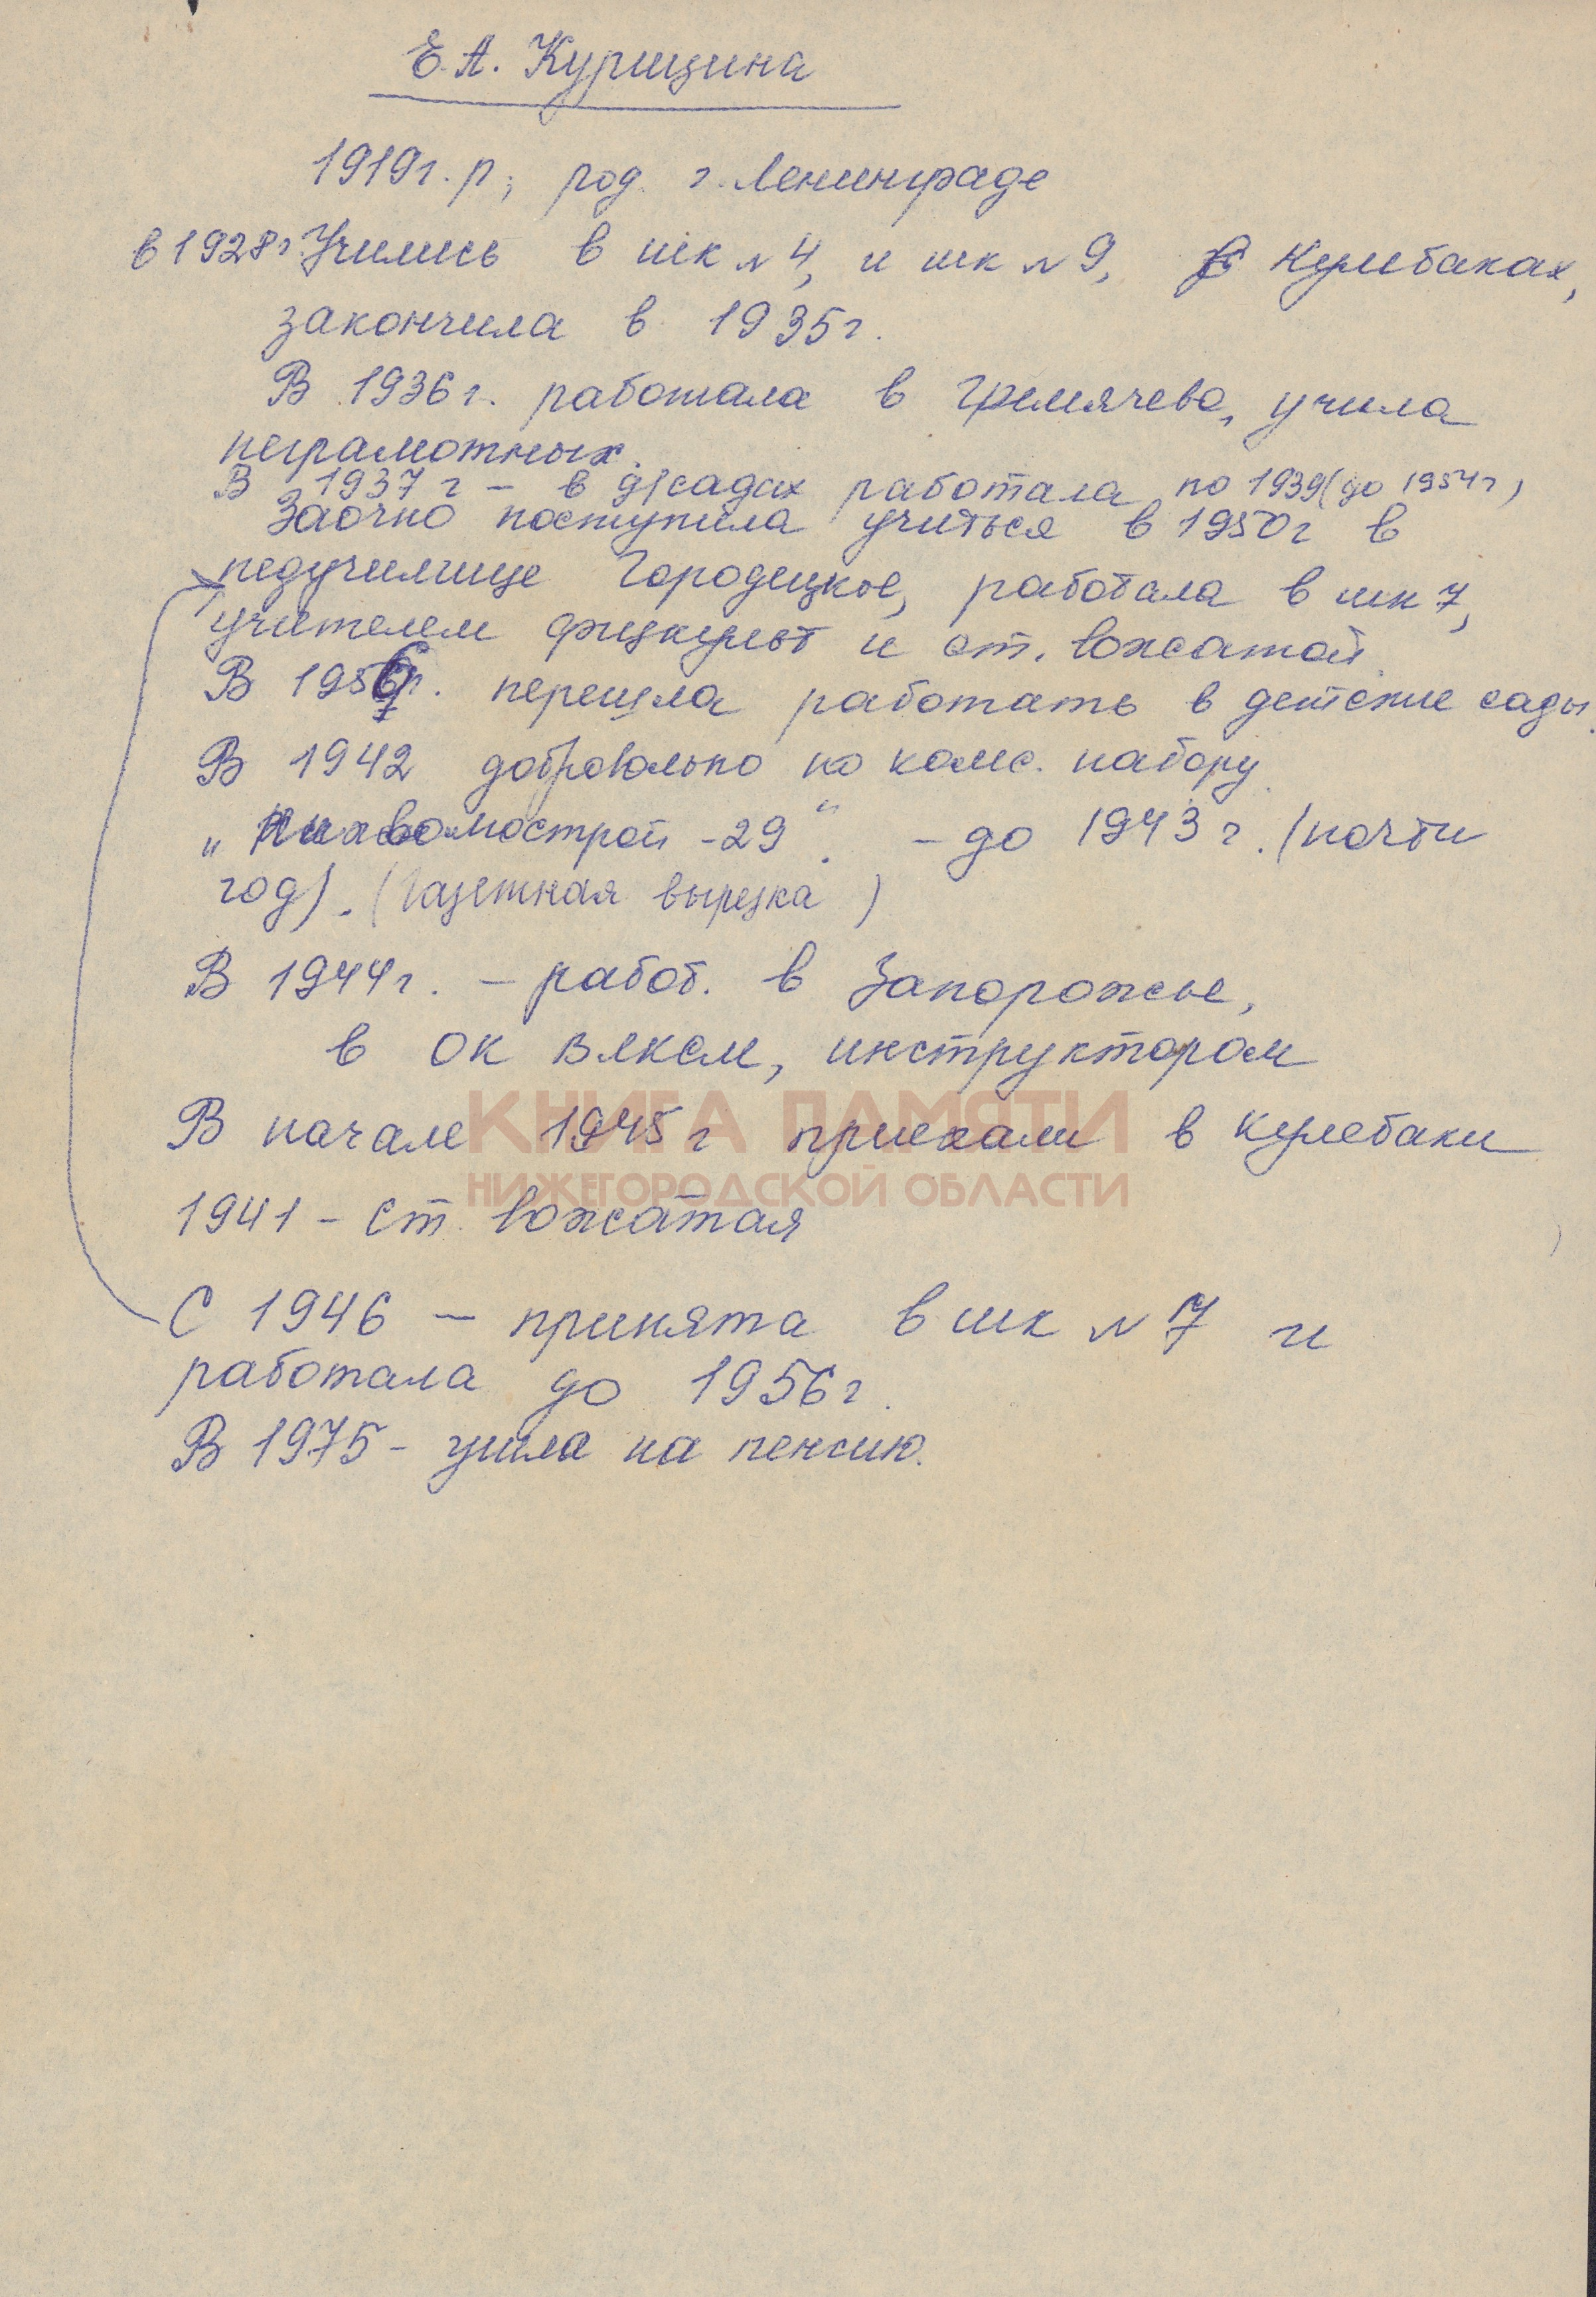 Е. А. Курицина
1919г. р; род. г. Ленинграде
в 1928г. Учились в шк № 4, и шк № 9, в Кулебаках,
закончила в 1935г.
В 1936г. работала в Гремячево, учила
неграмотных.
В 1937 г – в д/садах работала по 1939 (до 1954г)
Заочно поступила учиться в 1950г в
педучилище Городецкое, работала в шк 7,
учителем физкульт и ст. вожатой.
В 1956г. перешла работать в детские сады.
В 1942 добровольно по комс. набору
мострой -29". – до 1943 г. (почти
год). (Газетная вырезка )
В 1944г. – работ. в Запорожье,
в ОК ВЛКСМ, инструктором
КНИГА ПАМЯТИ
В начале 1945 г приехали в Кулебаки
НИЖЕГОРОДСКОЙ ОБЛАСТИ
1941 – ст. вожатая
С 1946 – принята в шк № 7 и
работала до 1956г.
В 1975 – ушла на пенсию.